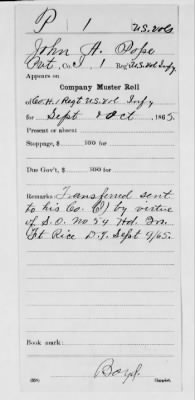 P 1 U.S. Vols
John A. Pope
Pvt, Co. I, 1 Reg't U.S. Vol Inf'y.
Appears on
Company Muster Roll
of Co H. 1 Regt U.S. Vol Inf'y
for Sept & Oct, 1865.
Present or absent
Stoppage, $ 100 for
Due Gov't, $ 100 for
Remarks: Transferred sent
to his Co. (I) by virtue
of S.O. No 54 Hd. Qrs.
Ft Rice D.T. Sept 9/65.
Book mark:
Boyd.
(858) Copyist.